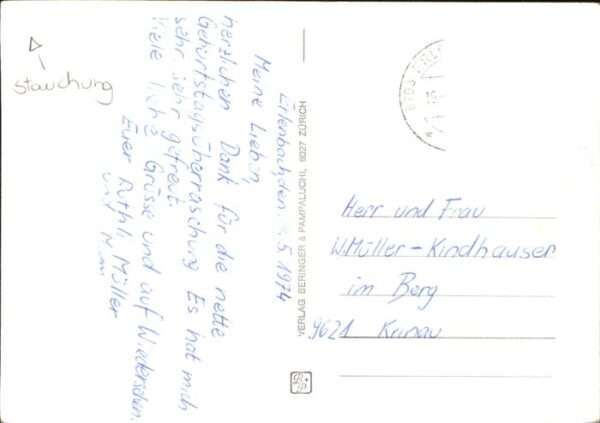 Stauchung
Erlenbach, den 5. 1974
Meine Lieben,
herzlichen Dank für die nette
Geburtstagsüberraschung Es hat mich
sehr sehr gefreut.
Viele liebe Grüsse und auf Wiedersehen.
Euer Ruthli Müller
und
VERLAG BERINGER & PAMPALUCHI, 8027 ZÜRICH
Herr und Frau
W. Müller-Kindhauser
im Berg
9621 Krinau